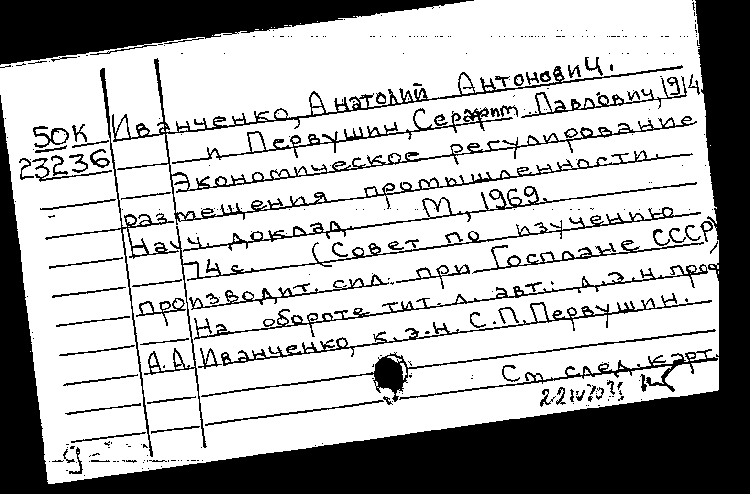 Иванченко, Анатолий Антонович.
50К
23236
и Первушин, Серафим Павлович, 1914.
Экономическое регулирование
размещения промышленности.
Науч. доклад. М., 1969.
74 с. (Совет по изучению
производит. сил. при Госплане СССР)
На обороте тит. л. авт.: д.э.н. проф
А.А. Иванченко, к.э.н. С.П. Первушин.
См след. карт.